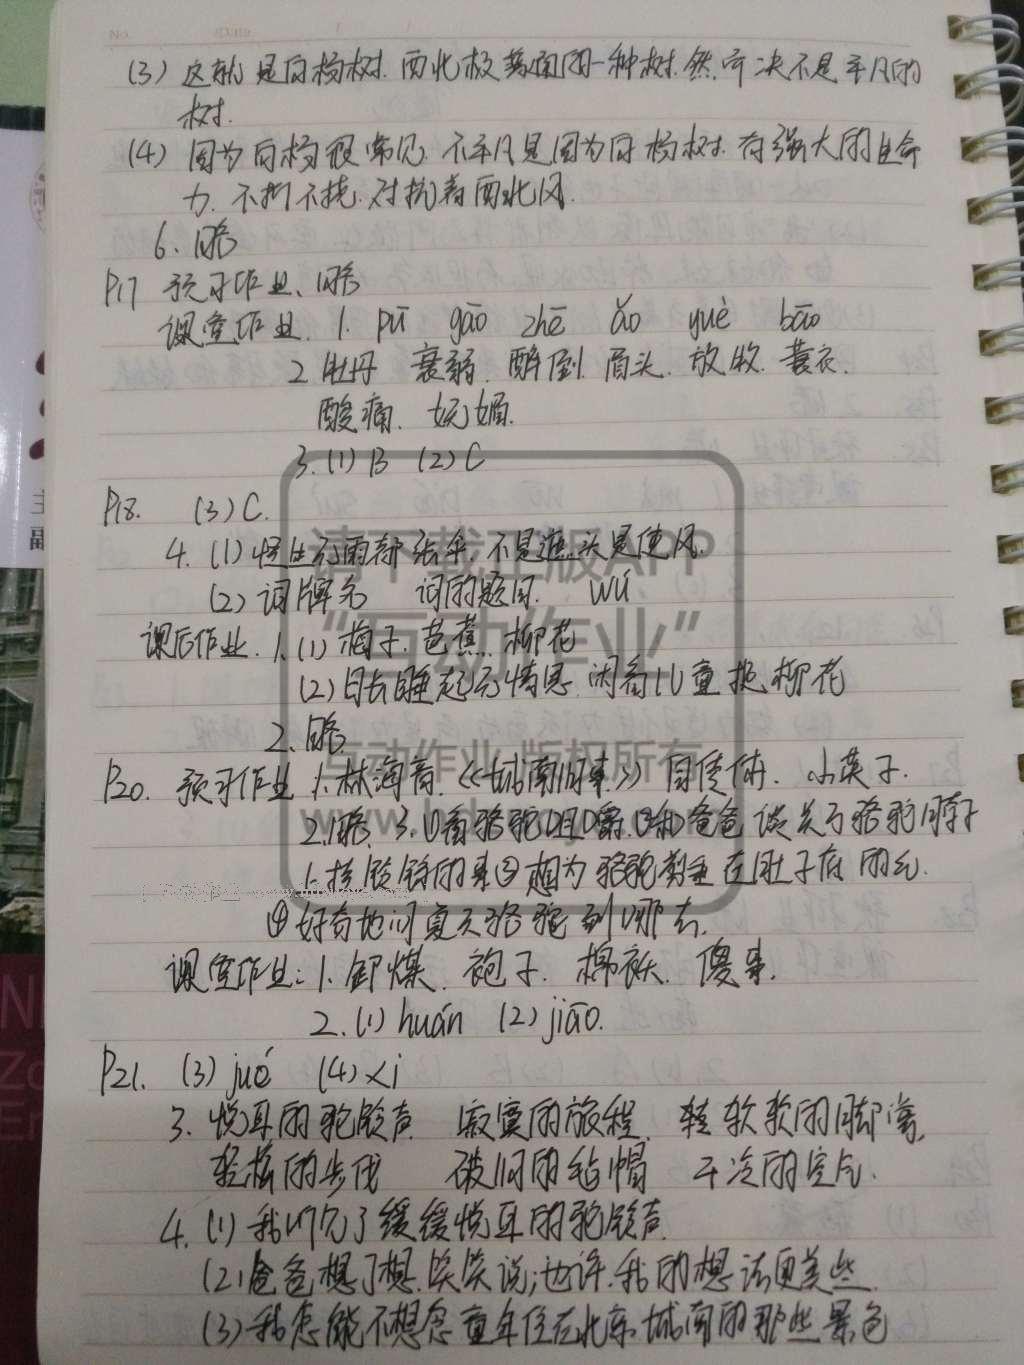 No.
(3) 这就是白杨树.西北极普通的一种树.然而决不是平凡的
树.
(4) 因为白杨很常见.不平凡是因为白杨树.有强大的生命
力.不折不挠.对抗着西北风.
6、略
P17 预习作业、略
课堂作业. 1. pū gāo zhē ǎo yuè bāo
2. 牡丹 衰弱. 醉倒. 眉头. 放牧. 蓑衣.
酸痛. 妩媚.
3. (1) B (2) C
P18. (3) C.
4. (1) 怪生无雨都张伞,不是遮头是使风.
(2) 词牌名 词的题目. wú
课后作业. 1. (1) 梅子. 芭蕉. 柳花
(2) 日长睡起无情思.闲看儿童捉柳花
2. 略
P20. 预习作业 1. 林海音.《城南旧事》 自传体. 小英子.
2. 略. 3. ①看骆驼咀嚼.②和爸爸谈关于骆驼脖子
上挂铃铛的事③想为骆驼剪垂在肚子底的毛.
④好奇地问夏天骆驼到哪去.
课堂作业: 1. 卸煤. 袍子. 棉袄. 傻事.
2. (1) huán (2) jiāo.
P21. (3) jué (4) xì
3. 悦耳的驼铃声 寂寞的旅程. 轻软软的脚掌.
轻松的步伐 破旧的毡帽 干冷的空气.
4. (1) 我听见了缓缓悦耳的驼铃声
(2) 爸爸想了想.笑笑说:也许.我的想法更美些.
(3) 我怎能不想念童年住在北京城南的那些景色
请下载正版APP
“互动作业”
互动作业 版权所有